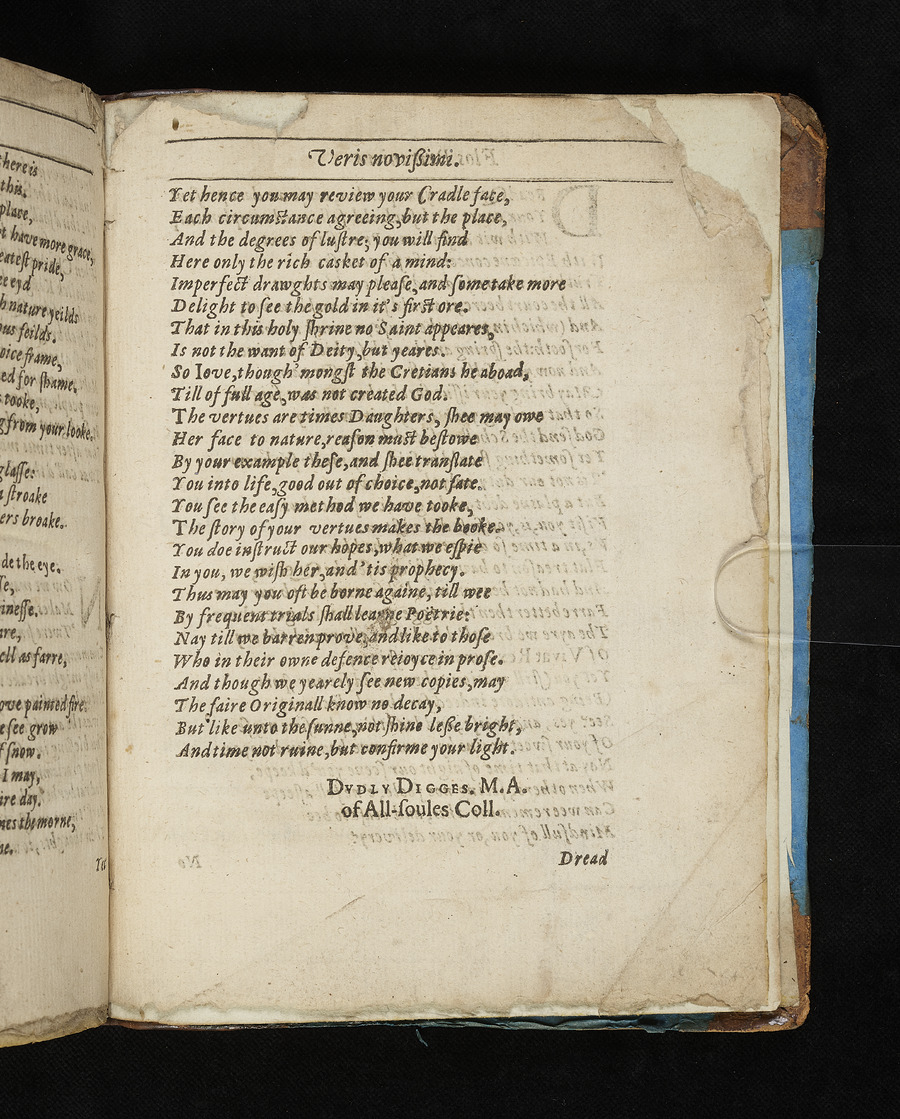 here is
this.
place,
t have more grace,
eatest pride,
ee eyd
h nature yeilds
ous feilds.
oice frame,
ed for shame.
tooke,
g from your looke.
glasse:
stroake
ers broake.
de the eye.
inesse.
are,
ell as farre,
ove painted fire.
e see grow
f snow.
I may,
ire day.
mes the morne,
Yet
Veris novißimi.
Yet hence you may review your Cradle face,
Each circumstance agreeing, but the place,
And the degrees of lustre; you will find
Here only the rich casket of a mind:
Imperfect drawghts may please, and some take more
Delight to see the gold in it's first ore.
That in this holy shrine no Saint appeares,
Is not the want of Deity, but yeares.
So Iove, though 'mongst the Cretians he aboad,
Till of full age, was not created God.
The vertues are times Daughters, shee may owe
Her face to nature, reason must bestowe
By your example these, and shee translate
You into life, good out of choice, not fate.
You see the easy method we have tooke,
The story of your vertues makes the booke.
You doe instruct our hopes, what we espie
In you, we wish her, and 'tis prophecy.
Thus may you oft be borne againe, till wee
By frequent trials shall learne Poëtrie:
Nay till we barren prove, and like to those
Who in their owne defence reioyce in prose.
And though we yearely see new copies, may
The faire Originall know no decay,
But like unto the sunne, not shine leße bright,
And time not ruine, but confirme your light.
DVDLY DIGGES. M.A.
of All-soules Coll.
Dread